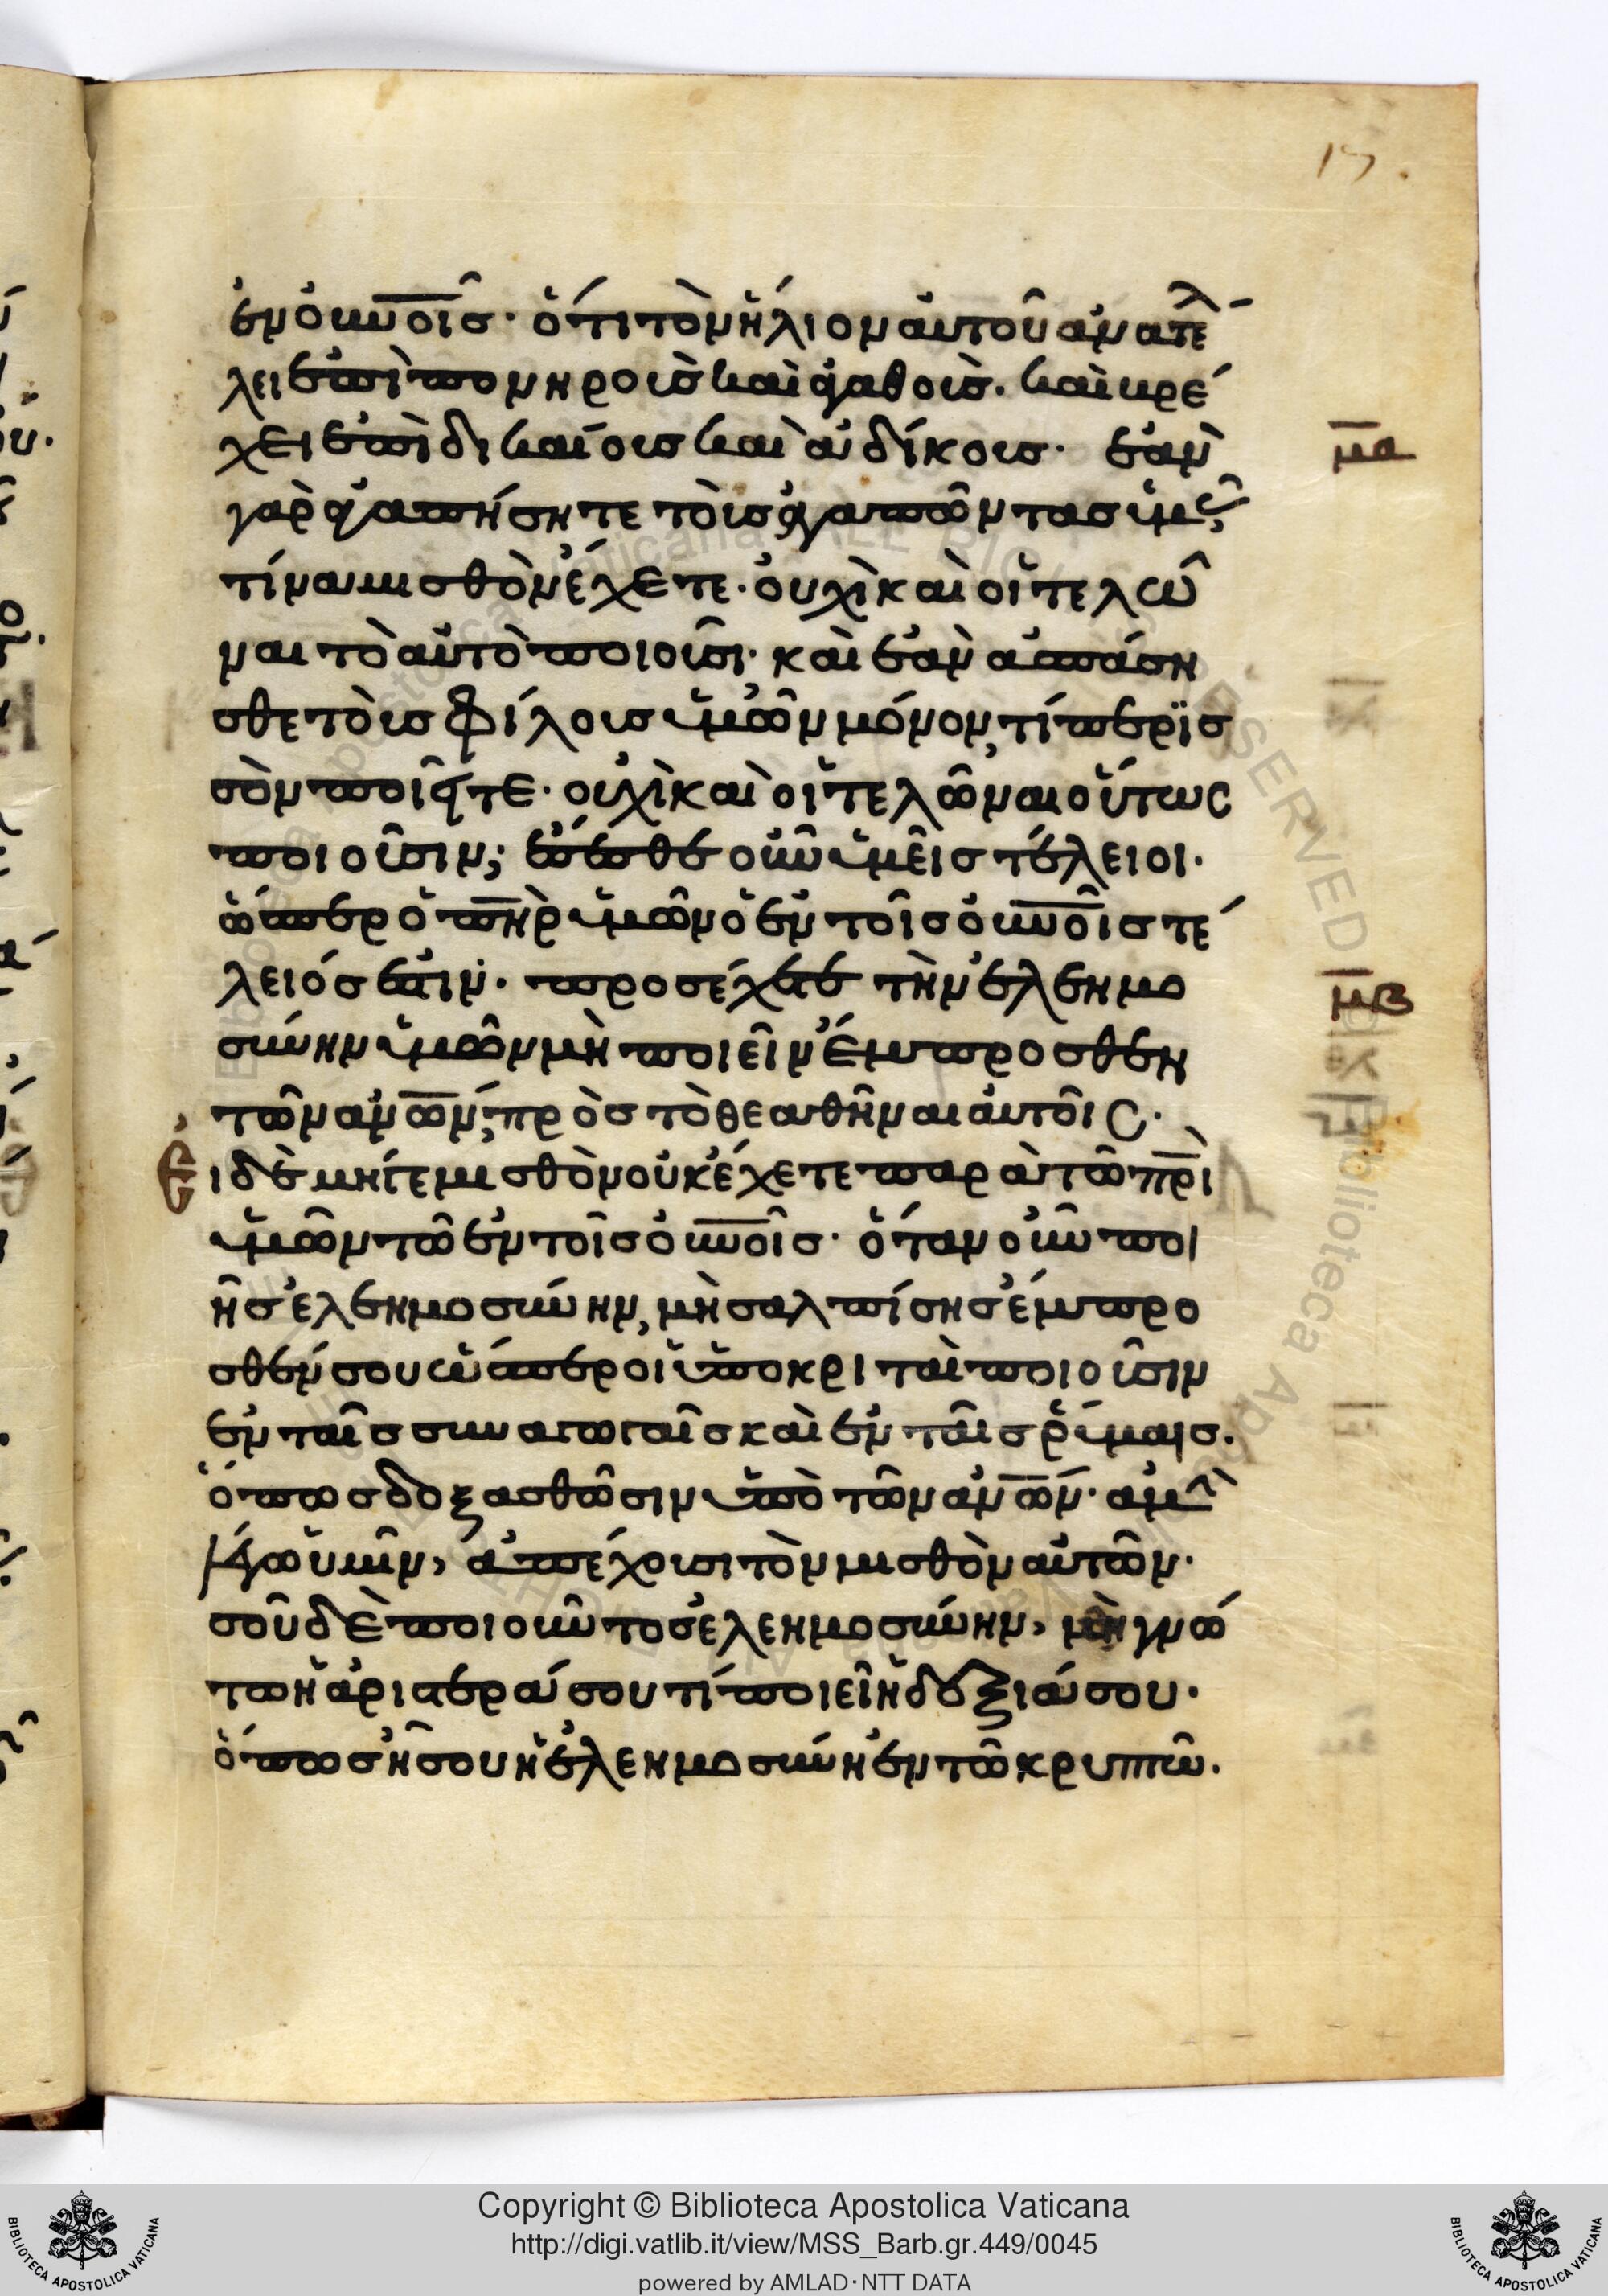 17.
ἐν οὐνοῖς· ὅτι τὸν ἥλιον αὐτοῦ ἀνατέλ
λει ἐπὶ πονηροὺς καὶ ἀγαθοὺς. καὶ βρέ
χει ἐπὶ δικαίους καὶ ἀδίκους· ἐὰν
μα
γὰρ ἀγαπήσητε τοὺς ἀγαπῶντας ὑμᾶς,
τίνα μισθὸν ἔχετε· οὐχὶ καὶ οἱ τελῶ
ναι τὸ αὐτὸ ποιοῦσι· καὶ ἐὰν ἀσπάση
σθε τοὺς φίλους ὑμῶν μόνον, τί περϊσ
σὸν ποιεῖτε· οὐχὶ καὶ οἱ τελῶναι οὕτως
ποιοῦσιν; ἔσεσθε οὖν ὑμεῖς τέλειοι·
ὥσπερ ὁ πηρ ὑμῶν ὁ ἐν τοῖς οὐνοῖς τέ
λειός ἐστιν· προσέχετε τὴν ἐλεημο
μβ
σύνην ὑμῶν μὴ ποιεῖν ἔμπροσθεν
τῶν ἀνων, πρὸς τὸ θεαθῆναι αὐτοῖς·
ει δὲ μήγε μισθὸν οὐκ ἔχετε παρὰ τῶ πρὶ
ὑμῶν τῶ ἐν τοῖς οὐνοῖς· ὅταν οὖν ποι
ῆς ἐλεημοσύνην, μὴ σαλπίσης ἔμπρο
σθέν σου ὥσπερ οἱ ὑποκριταὶ ποιοῦσιν
ἐν ταῖς συναγωγαῖς καὶ ἐν ταῖς ῥύμαις.
ὅπως δοξασθῶσιν ὑπὸ τῶν ἀνων· ἀμὴν
λέγω ὑμῖν, ἀπέχουσι τὸν μισθὸν αὐτῶν·
σοῦ δὲ ποιοῦντος ἐλεημοσύνην, μὴ γνώ
τω ἡ ἀριστερά σου τί ποιεῖ ἡ δεξιά σου·
ὅπως ἦ σου ἡ ἐλεημοσύνη ἐν τῶ κρυπτῶ.
Copyright © Biblioteca Apostolica Vaticana
http://digi.vatlib.it/view/MSS_Barb.gr.449/0045
powered by AMLAD·NTT DATA
BIBLIOTECA APOSTOLICA VATICANA
BIBLIOTECA APOSTOLICA VATICANA